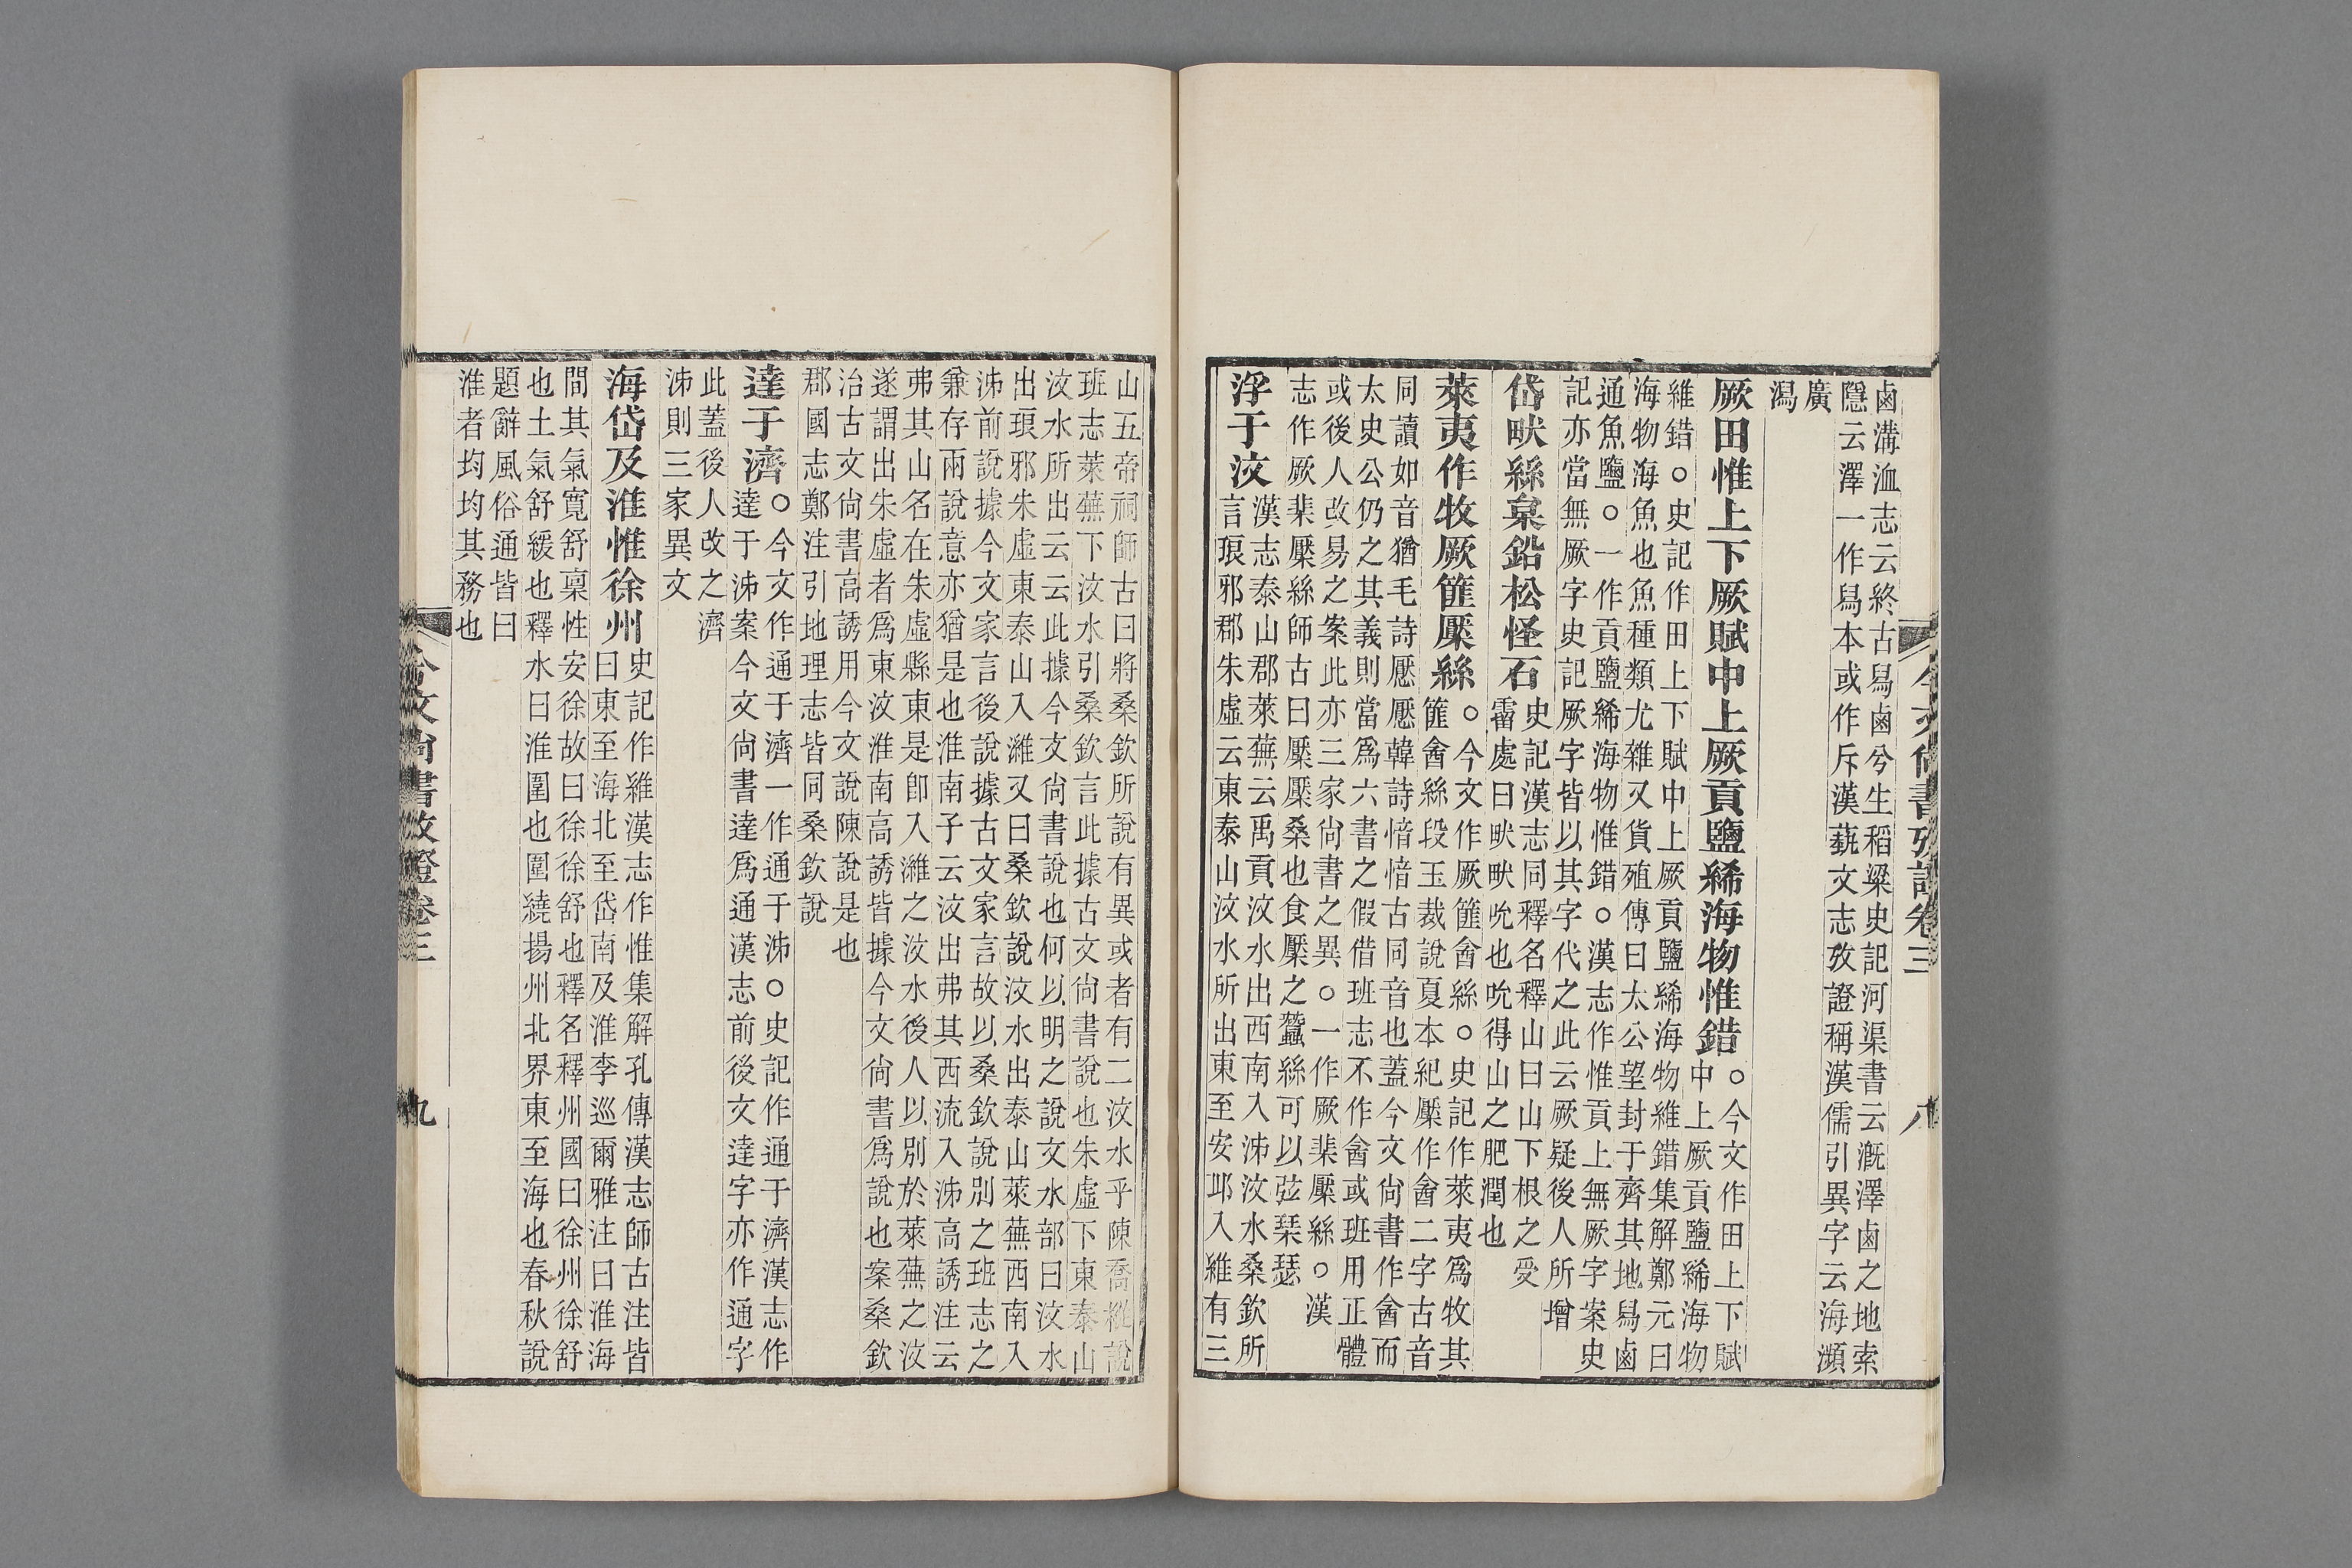 鹵溝洫志云終古舄鹵兮生稻粱史記河渠書云溉澤鹵之地索
隱云澤一作舄本或作斥漢蓺文志攷證稱漢儒引異字云海瀕
廣
潟
厥田惟上下厥賦中上厥貢鹽絺海物惟錯
○今文作田上下賦
中上厥貢鹽絺海物
維錯○史記作田上下賦中上厥貢鹽絺海物維錯集解鄭元曰
海物海魚也魚種類尤雜又貨殖傳曰太公望封于齊其地舄鹵
通魚鹽○一作貢鹽絺海物惟錯○漢志作惟貢上無厥字案史
記亦當無厥字史記厥字皆以其字代之此云厥疑後人所增
岱畎絲枲鉛松怪石
史記漢志同釋名釋山曰山下根之受
霤處曰畎畎吮也吮得山之肥潤也
萊夷作牧厥篚檿絲
○今文作厥篚酓絲○史記作萊夷爲牧其
篚酓絲段玉裁說夏本紀檿作酓二字古音
同讀如音猶毛詩懕懕韓詩愔愔古同音也蓋今文尙書作酓而
太史公仍之其義則當爲六書之假借班志不作酓或班用正體
或後人改易之案此亦三家尙書之異○一作厥棐檿絲○漢
志作厥棐檿絲師古曰檿檿桑也食檿之蠶絲可以弦琹瑟
浮于汶
漢志泰山郡萊蕪云禹貢汶水出西南入泲汶水桑欽所
言琅邪郡朱虛云東泰山汶水所出東至安邱入維有三
山五帝祠師古曰將桑欽所說有異或者有二汶水乎陳喬樅說
班志萊蕪下汶水引桑欽言此據古文尙書說也朱虛下東泰山
汶水所出云云此據今文尙書說也何以明之說文水部曰汶水
出琅邪朱虛東泰山入濰又曰桑欽說汶水出泰山萊蕪西南入
泲前說據今文家言後說據古文家言故以桑欽說別之班志之
兼存兩說意亦猶是也淮南子云汶出弗其西流入泲高誘注云
弗其山名在朱虛縣東是卽入濰之汶水後人以別於萊蕪之汶
遂謂出朱虛者爲東汶淮南高誘皆據今文尙書爲說也案桑欽
治古文尙書高誘用今文說陳說是也
郡國志鄭注引地理志皆同桑欽說
達于濟
○今文作通于濟一作通于泲○史記作通于濟漢志作
達于泲案今文尙書達爲通漢志前後文達字亦作通字
此蓋後人改之濟
泲則三家異文
海岱及淮惟徐州
史記作維漢志作惟集解孔傳漢志師古注皆
曰東至海北至岱南及淮李巡爾雅注曰淮海
間其氣寬舒稟性安徐故曰徐徐舒也釋名釋州國曰徐州徐舒
也土氣舒緩也釋水曰淮圍也圍繞揚州北界東至海也春秋說
題辭風俗通皆曰
淮者均均其務也
今文尙書攷證卷三
八
今文尙書攷證卷三
九